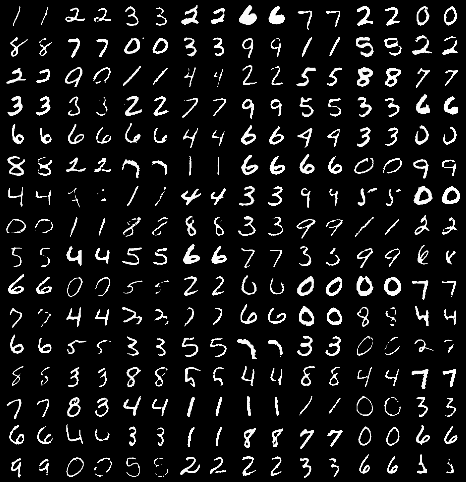 1 1 2 2 3 3 2 2 6 6 7 7 2 2 0 0
8 8 7 7 0 0 3 3 9 9 1 1 5 5 2 2
2 2 9 0 1 1 4 4 2 2 5 5 8 8 7 7
3 3 3 3 2 2 7 7 9 9 5 5 3 3 6 6
6 6 6 6 6 6 4 4 6 6 9 9 3 3 0 0
8 8 2 2 7 7 1 1 6 6 6 6 0 0 9 9
4 4 1 1 4 4 3 3 9 9 5 5 0 0
0 0 1 1 8 8 8 8 3 3 9 9 1 1 2 2
5 5 4 4 5 5 6 6 7 7 3 3 9 9
6 6 0 0 5 5 2 2 0 0 0 0 0 0 7 7
7 7 4 4 2 2 7 7 6 6 0 0 8 8 4 4
6 6 5 5 3 3 5 5 7 7 3 3 0 0 2
8 8 3 3 8 8 5 5 4 4 8 8 4 4 7 7
7 7 8 3 4 4 1 1 1 1 1 1 0 0 3 3
6 6 4 3 3 1 1 8 8 7 7 0 0 6 6
9 9 0 0 5 5 2 2 2 2 3 3 6 6